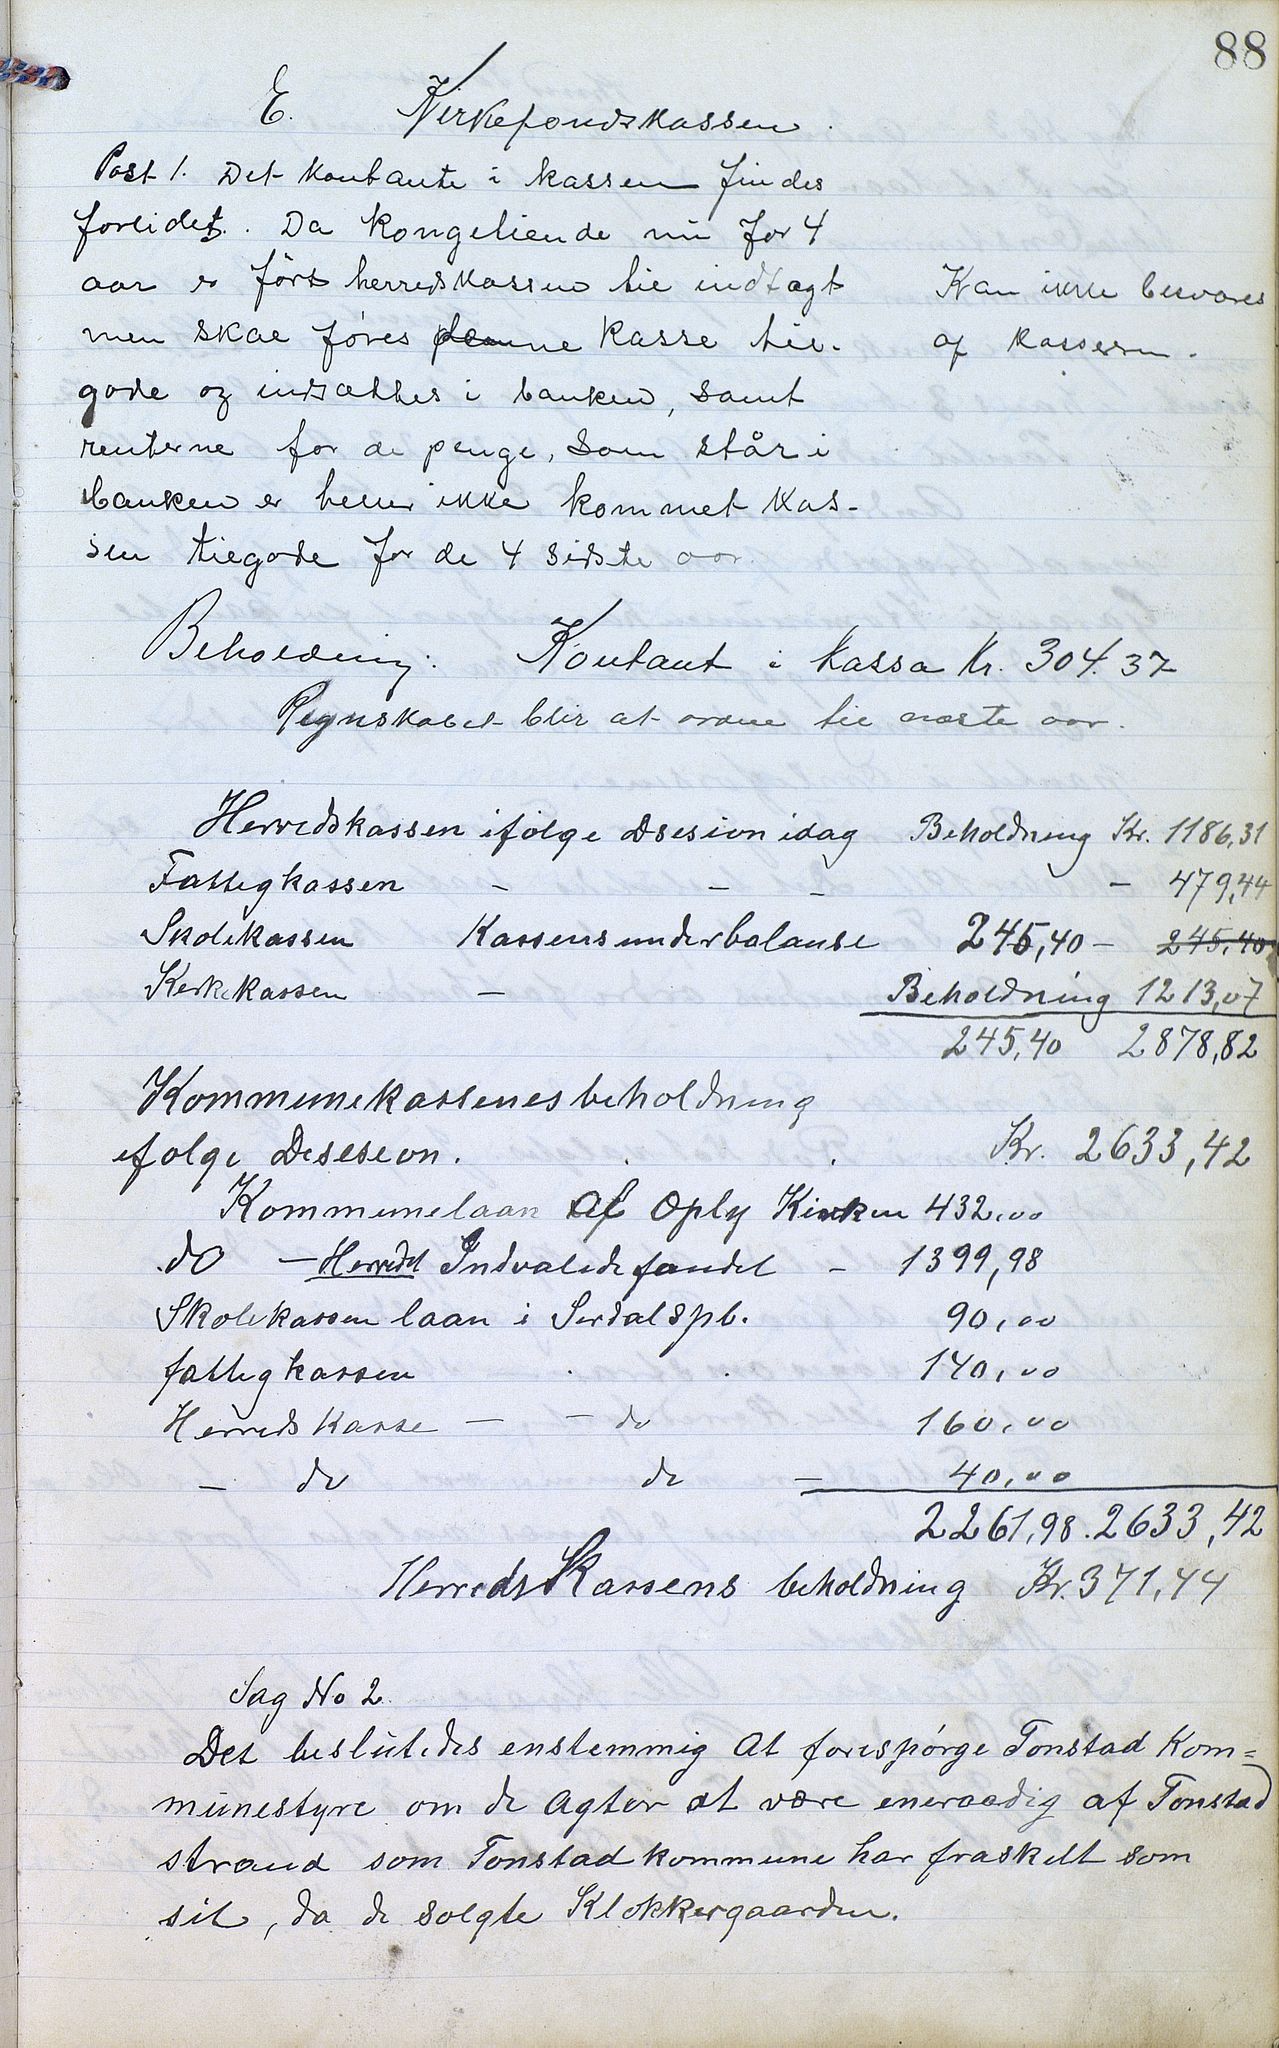 88
E. Kirkefondskassen.
Post 1. Det kontante i kassen findes
forlidet. Da kongetiende nu for 4
aar er ført herredskassen til indtægt
men skal føres denne kasse til-
gode og indsættes i banken, samt
renterne for de penge, som står i
banken er heller ikke kommet kas-
sen tilgode for de 4 sidste aar.
Kan ikke besvares
af kassereren.
Beholdning: Kontant i kassa Kr. 304.37
Regnskabet blir at ordne til næste aar.
Herredskassen ifølge Desesion idag Beholdning Kr. 1186,31
Fattigkassen - - - - 479,44
Skolekassen Kassens underbalanse 245,40 - 245,40
Kerkekassen - Beholdning 1213,07
245,40 2878,82
Kommunekassenes beholdning
ifølge Desesion. Kr. 2633,42
Kommunelaan af Oply Kirken 432,00
do - Herredet Indvalidefondet - 1399,98
Skolekassen laan i Serdal Spb. 90,00
fattigkassen 140,00
Herreds Kasse - - do 160,00
- do do - 40,00
2261,98. 2633,42
Herreds Kassens beholdning Kr. 371,44
Sag No 2
Det beslutedes enstemmig At forespørge Tonstad Kom=
munestyre om de Agter at være eneraadig af Tonstad
strand som Tonstad kommune har fraskelt som
sit, da de solgte Klokkergaarden.